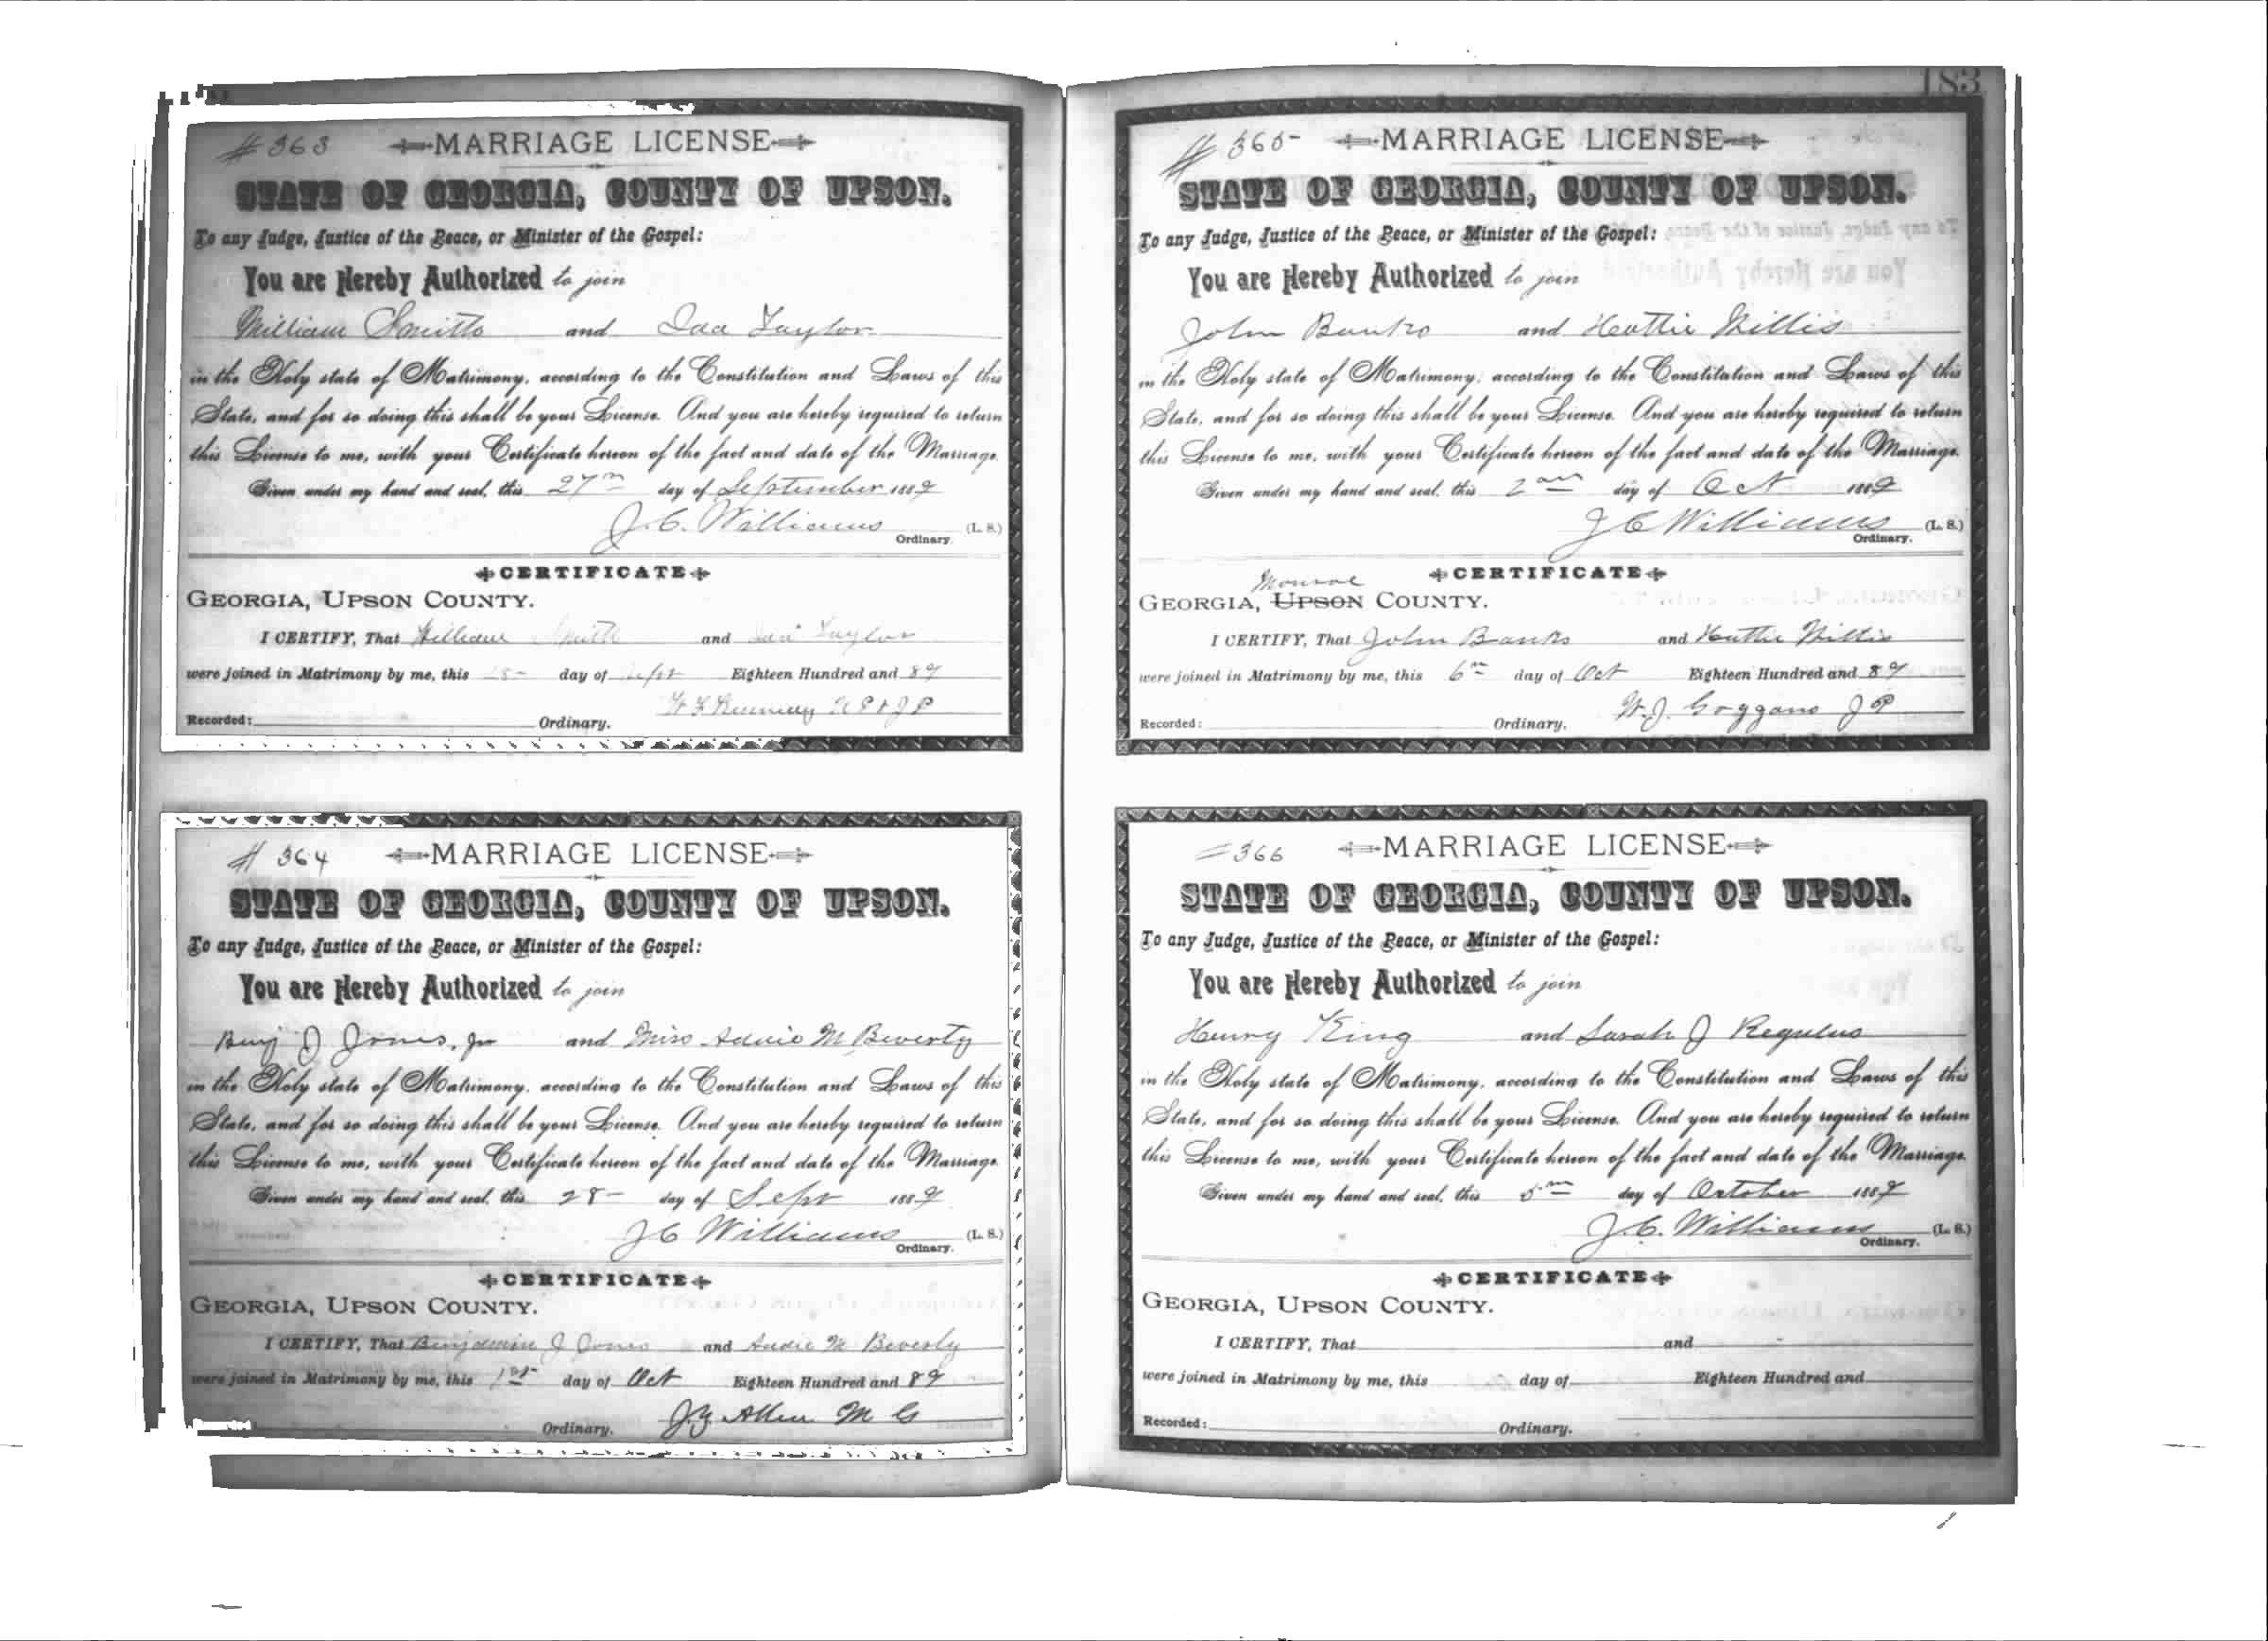 183
# 363 MARRIAGE LICENSE
STATE OF GEORGIA, COUNTY OF UPSON.
To any Judge, Justice of the Peace, or Minister of the Gospel:
You are Hereby Authorized to join
William Smith and Ida Taylor
in the Holy state of Matrimony, according to the Constitution and Laws of this
State, and for so doing this shall be your License. And you are hereby required to return
this License to me, with your Certificate hereon of the fact and date of the Marriage.
Given under my hand and seal, this 27th day of September 1889
J. C. Williams (L. S.)
Ordinary.
CERTIFICATE
GEORGIA, UPSON COUNTY.
I CERTIFY, That William Smith and Ida Taylor
were joined in Matrimony by me, this 28 day of Sept Eighteen Hundred and 89
J P
Recorded: Ordinary.
# 364 MARRIAGE LICENSE
STATE OF GEORGIA, COUNTY OF UPSON.
To any Judge, Justice of the Peace, or Minister of the Gospel:
You are Hereby Authorized to join
Benj J Jones, Jr and Miss Addie M Beverly
in the Holy state of Matrimony, according to the Constitution and Laws of this
State, and for so doing this shall be your License. And you are hereby required to return
this License to me, with your Certificate hereon of the fact and date of the Marriage.
Given under my hand and seal, this 28 day of Sept 1889
J C Williams (L. S.)
Ordinary.
CERTIFICATE
GEORGIA, UPSON COUNTY.
I CERTIFY, That Benjamin J Jones and Addie M Beverly
were joined in Matrimony by me, this 1st day of Oct Eighteen Hundred and 89
Recorded: Ordinary. J. Y. Allen M G
# 365 MARRIAGE LICENSE
STATE OF GEORGIA, COUNTY OF UPSON.
To any Judge, Justice of the Peace, or Minister of the Gospel:
You are Hereby Authorized to join
John Banks and Hattie Willis
in the Holy state of Matrimony, according to the Constitution and Laws of this
State, and for so doing this shall be your License. And you are hereby required to return
this License to me, with your Certificate hereon of the fact and date of the Marriage.
Given under my hand and seal, this 2nd day of Oct 1889
J C Williams (L. S.)
Ordinary.
CERTIFICATE
Monroe
GEORGIA, UPSON COUNTY.
I CERTIFY, That John Banks and Hattie Willis
were joined in Matrimony by me, this 6th day of Oct Eighteen Hundred and 89
W. J. Goggans J P
Recorded: Ordinary.
# 366 MARRIAGE LICENSE
STATE OF GEORGIA, COUNTY OF UPSON.
To any Judge, Justice of the Peace, or Minister of the Gospel:
You are Hereby Authorized to join
Henry King and Sarah J Regulus
in the Holy state of Matrimony, according to the Constitution and Laws of this
State, and for so doing this shall be your License. And you are hereby required to return
this License to me, with your Certificate hereon of the fact and date of the Marriage.
Given under my hand and seal, this 5th day of October 1889
J. C. Williams (L. S.)
Ordinary.
CERTIFICATE
GEORGIA, UPSON COUNTY.
I CERTIFY, That and
were joined in Matrimony by me, this day of Eighteen Hundred and
Recorded: Ordinary.